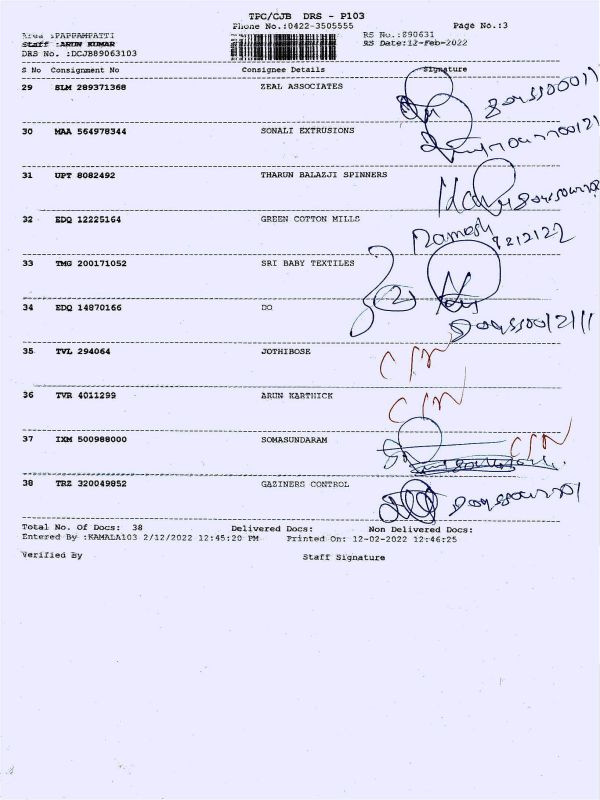 TPC/CJB DRS - P103
Phone No.:0422-3505555 Page No.:3
Area :PAPPAMPATTI RS No.:890631
Staff :ARUN KUMAR RS Date:12-Feb-2022
DRS No. :DCJB89063103
S No Consignment No Consignee Details Signature
29 SLM 289371368 ZEAL ASSOCIATES
30 MAA 564978344 SONALI EXTRUSIONS
31 UPT 8082492 THARUN BALAZJI SPINNERS
32 EDQ 12225164 GREEN COTTON MILLS
Ramesh
33 TMG 200171052 SRI BABY TEXTILES
34 EDQ 14870166 DO
35 TVL 294064 JOTHIBOSE C/N
36 TVR 4011299 ARUN KARTHICK C/N
37 IXM 500988000 SOMASUNDARAM C/N
38 TRZ 320049852 GAZINERS CONTROL
Total No. Of Docs: 38 Delivered Docs: Non Delivered Docs:
Entered By :KAMALA103 2/12/2022 12:45:20 PM Printed On: 12-02-2022 12:46:25
Verified By Staff Signature